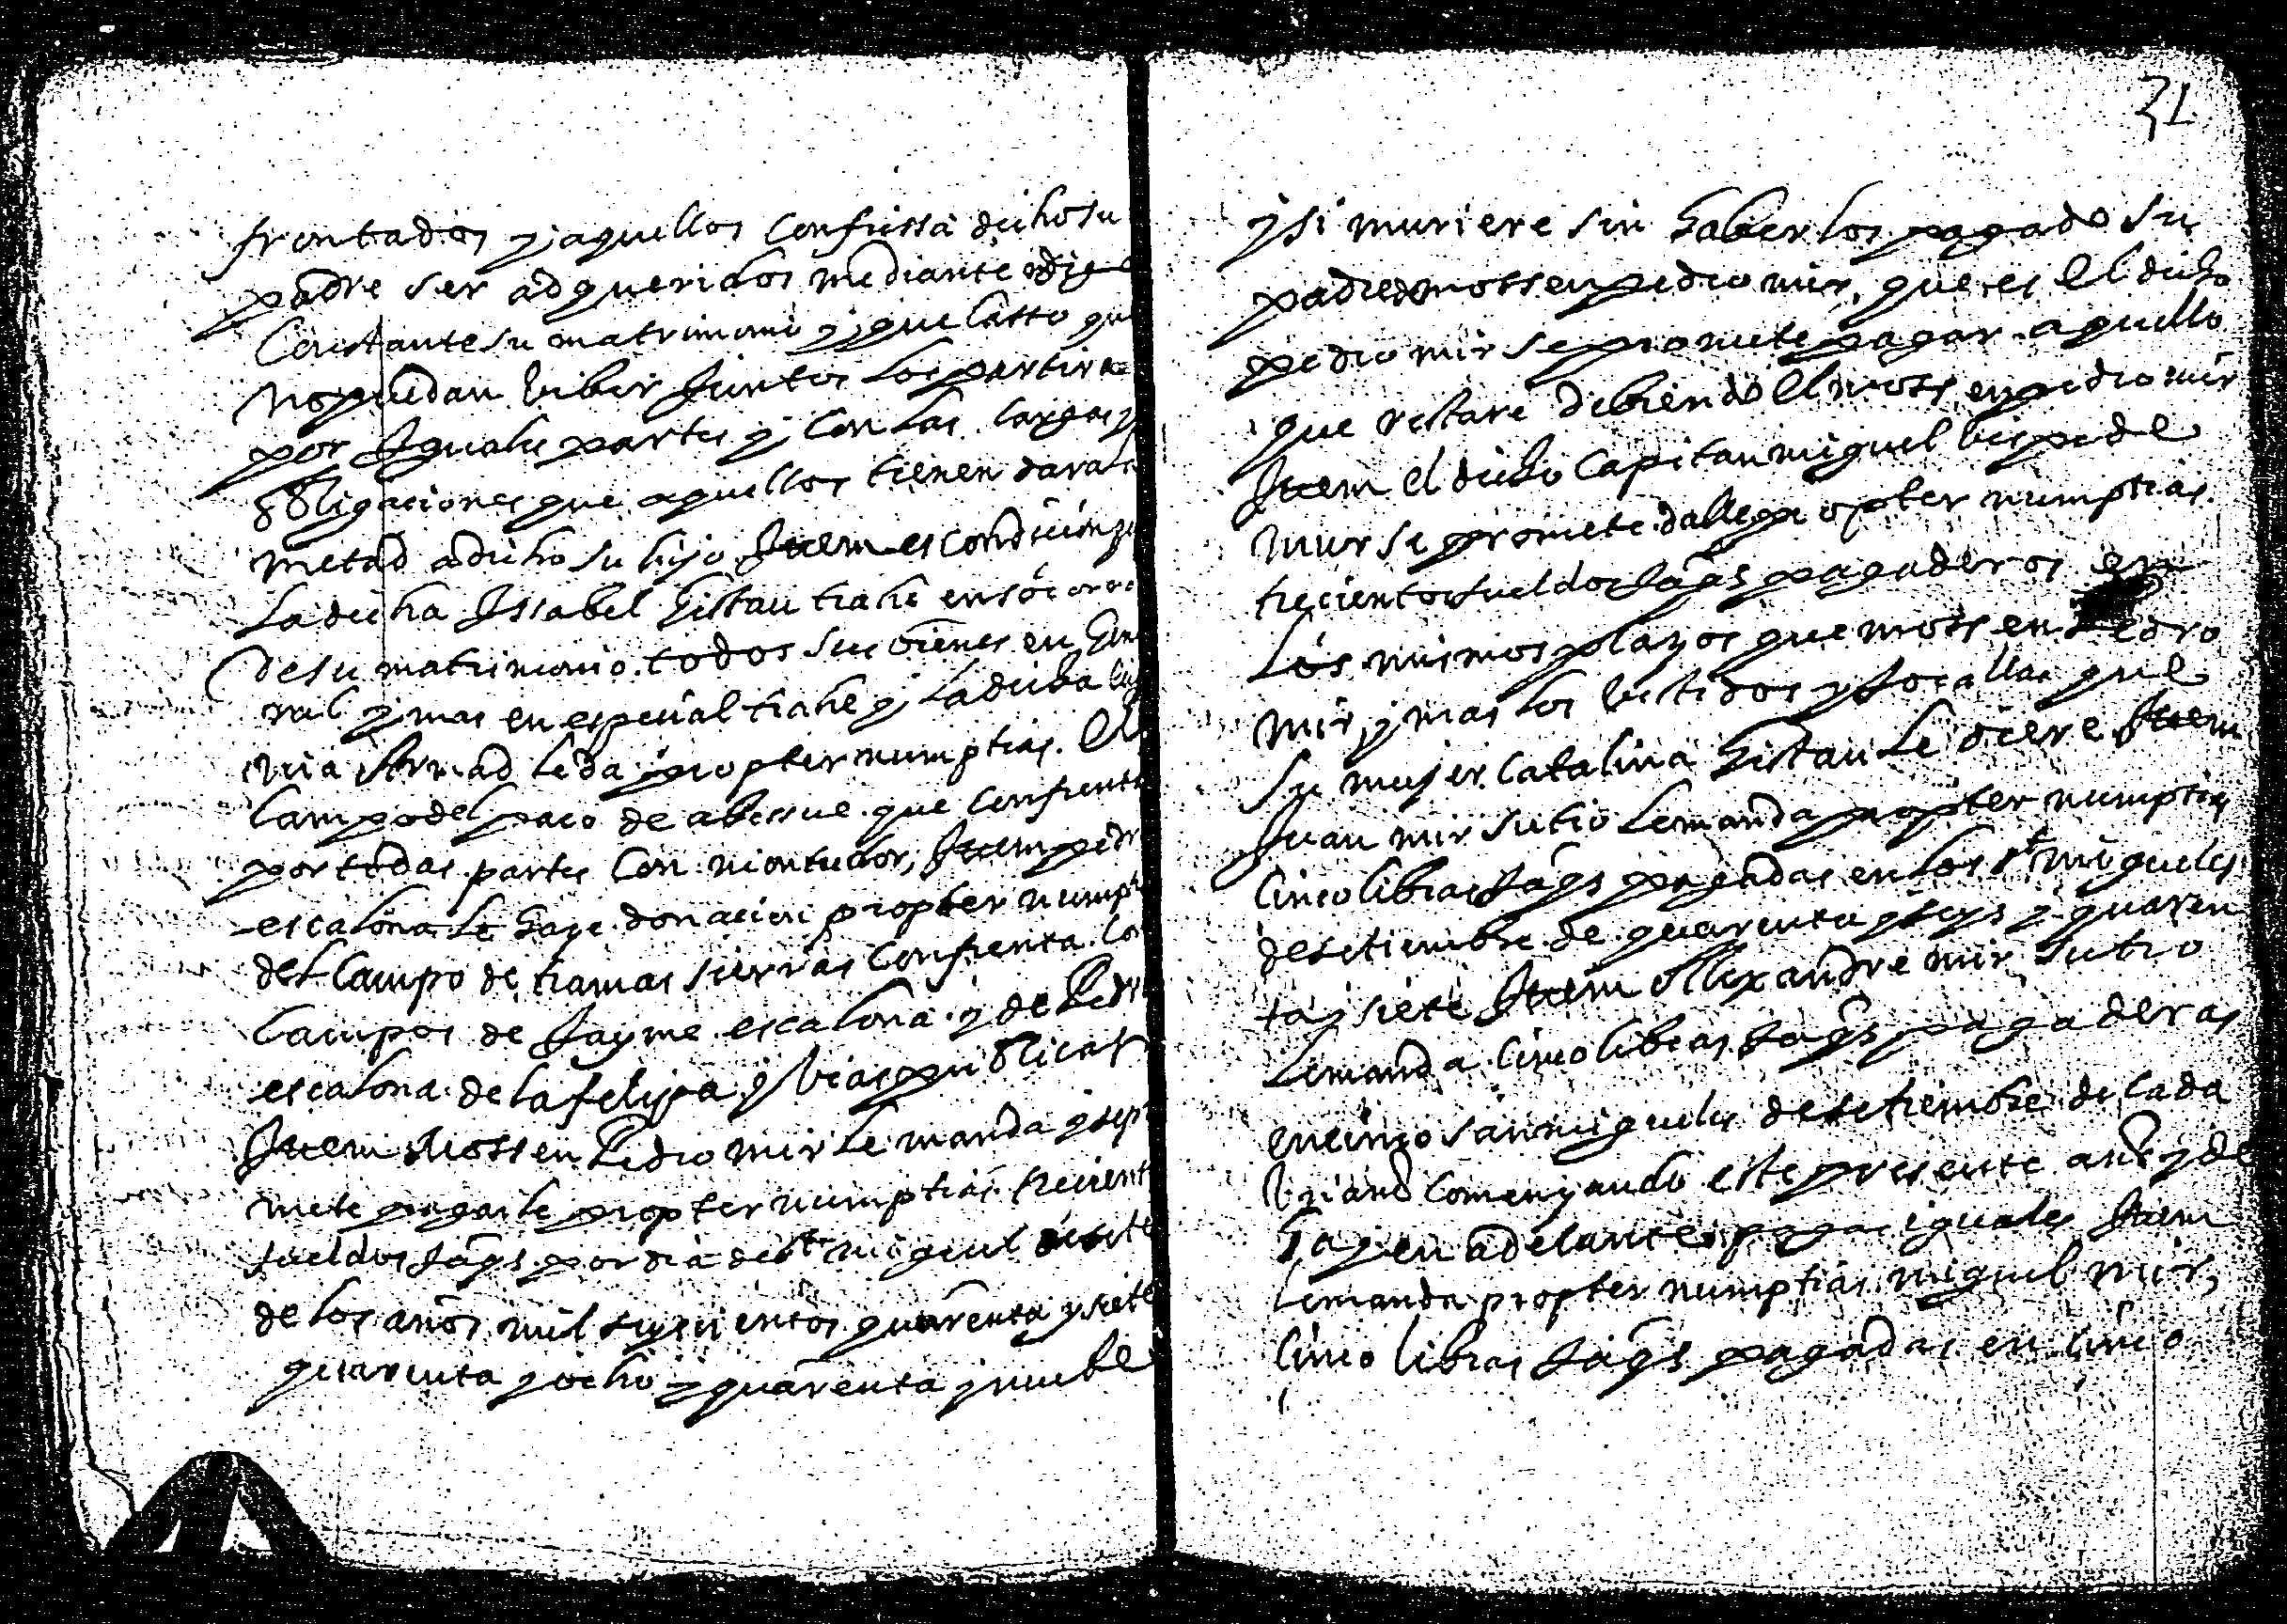 frontados y aquellos confiessa dicho su
padre ser adqueridos mediante
Constante su matrimonio y que casso que
no puedan bibir Juntos los partira
por Iguales partes y con las cargas y
obligaciones que aquellos tienen dara la
metad a dicho su hijo Item es condicion q
La dicha Issabel Gistau trahe en socorro
de su matrimonio todos sus bienes en Gene
ral y mas en especial trahe y la dicha
le da propter numptias el
Campo del paco de abessue que confrenta
por todas partes con montubor, Item pedro
escalona le haze donacion propter numptias
del Campo de tramas sierras confrenta con
Campos de Jayme escalona y de Pedro
escalona de la felipa y bias publicas
Item Mossen Pedro mir le manda y pro
mete pagarle propter numptias trecientos
sueldos Jaqs por dia de st miguel de sete
de los años mil seyscientos quarenta y siete
quarenta y ocho y quarenta y nuebe
31
y si muriere sin haberlos pagado su
padre de mossen pedro mir, que es el dicho
pedro mir se promete pagar aquello
que restare debiendo el moss en pedro mir
Item el dicho Capitan miguel bispe de
mur se promete dalle propter numptias
trecientos sueldos Jaqs pagaderos en
Los mismos plazos que moss en Pedro
mir, y mas los bestidos y tocallas que
su mujer Catalina Gistau le diere Item
Juan mir su tio le manda propter numptias
cinco libras Jaqs pagadas en los st migueles
de setiembre de quarenta y seys y quaren
ta y siete Item Alexandre mir su tio
le manda cinco libras Jaqs pagaderas
en cinco san migueles de setiembre de cada
un año començando este presente año y de
hay en adelante pagas iguales Item
le manda propter numptias miguel mir,
cinco libras Jaqs pagadas en cinco